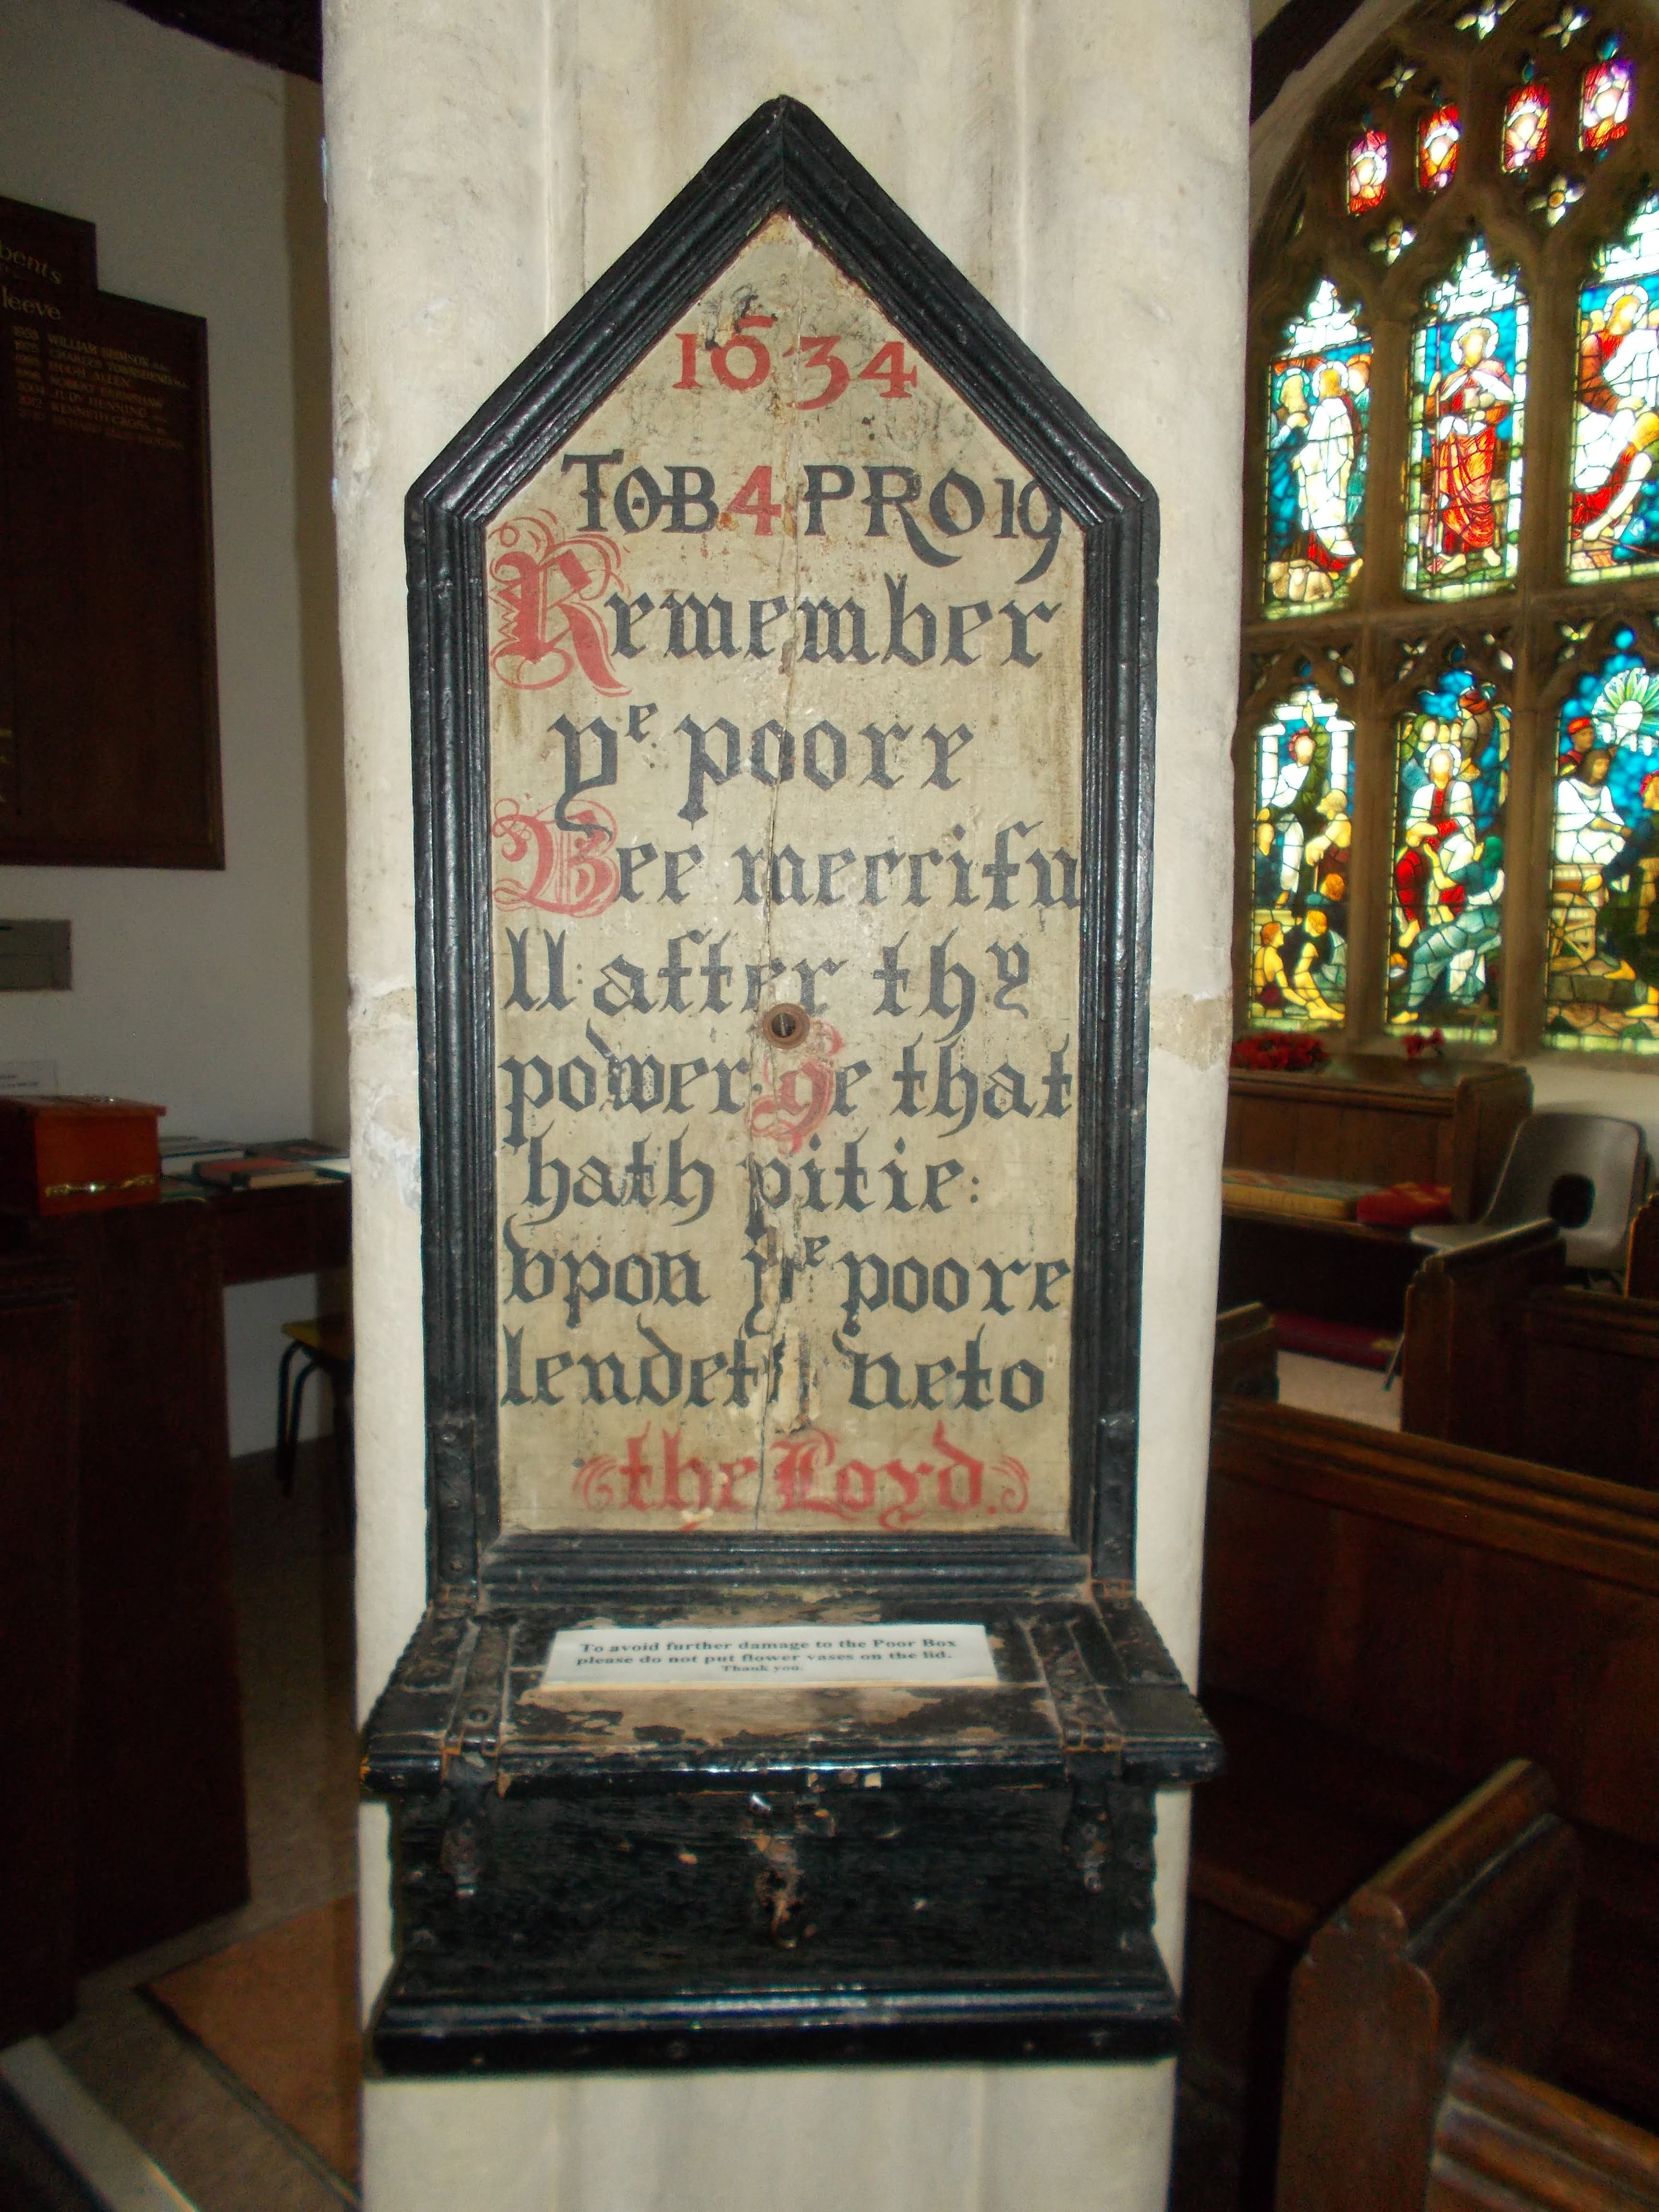 1634
TOB 4 PRO 19
Remember
yᵉ poore
Bee mercifu
ll after thy
power: He that
hath pitie:
vpon yᵉ poore
lendeth neto
the Lord.
To avoid further damage to the Poor Box
please do not put flower vases on the lid.
Thank you.
leeve
WILLIAM
HUGH ALLEN
ROBERT
JUDY HENNING